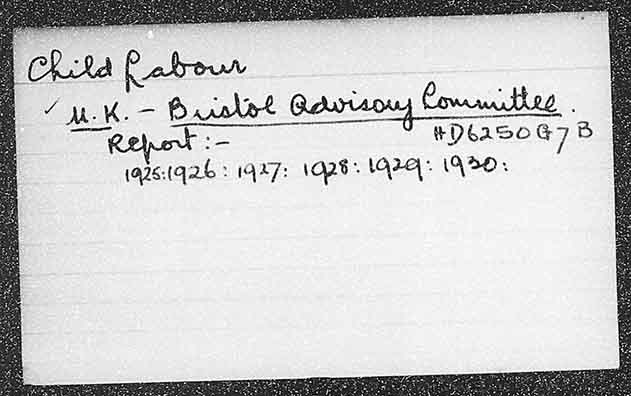 Child Labour
✓ U.K. - Bristol Advisory Committee.
Report :- HD6250G7B
1925:1926: 1927: 1928: 1929: 1930: